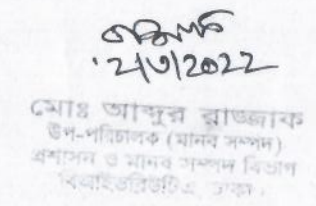 2/3/2022
মোঃ আব্দুর রাজ্জাক
উপ-পরিচালক (মানব সম্পদ)
প্রশাসন ও মানব সম্পদ বিভাগ
বিআইডব্লিউটিএ, ঢাকা।